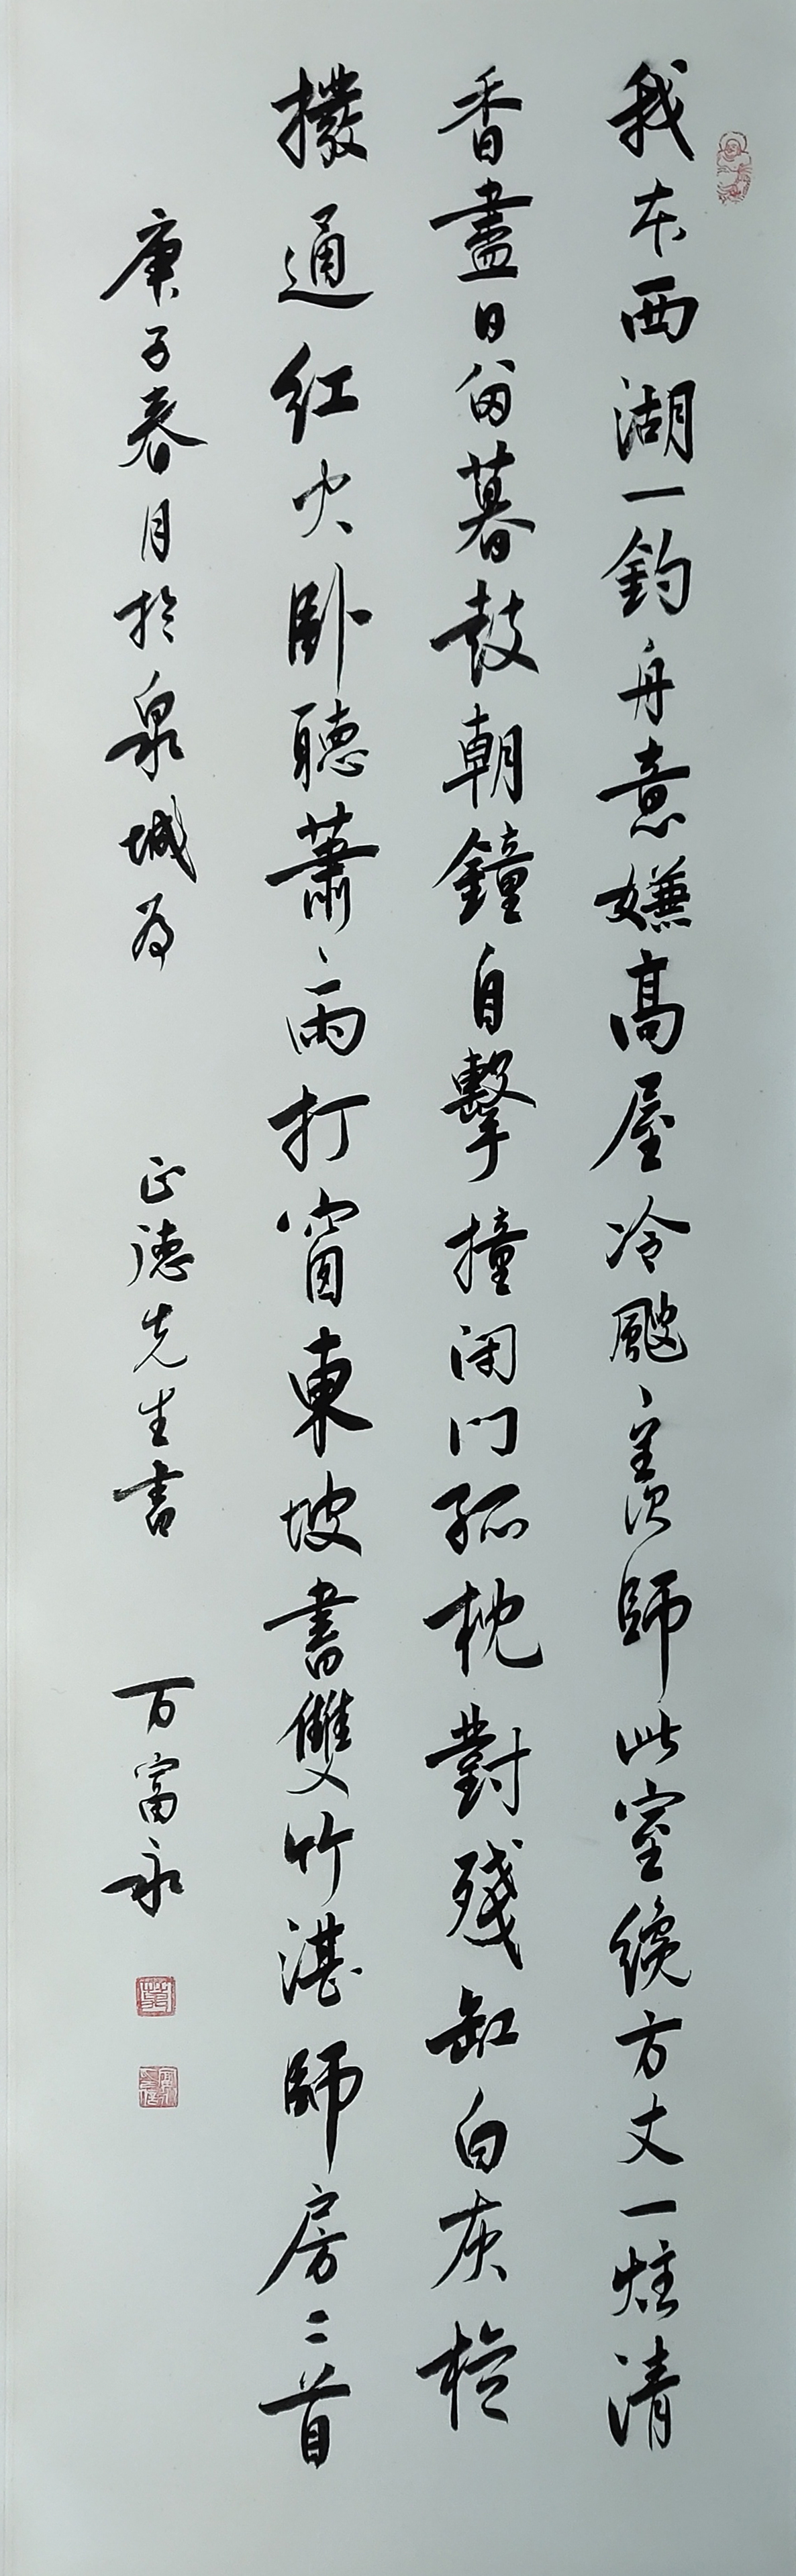 我本西湖一釣舟意嫌高屋冷颼〻羨師此室纔方丈一炷清
香盡日留暮鼓朝鐘自擊撞閉門孤枕對殘缸白灰旋
撥通紅火卧聽蕭〻雨打窗東坡書雙竹湛師房二首
庚子春月於泉城為 正德先生書 万富永